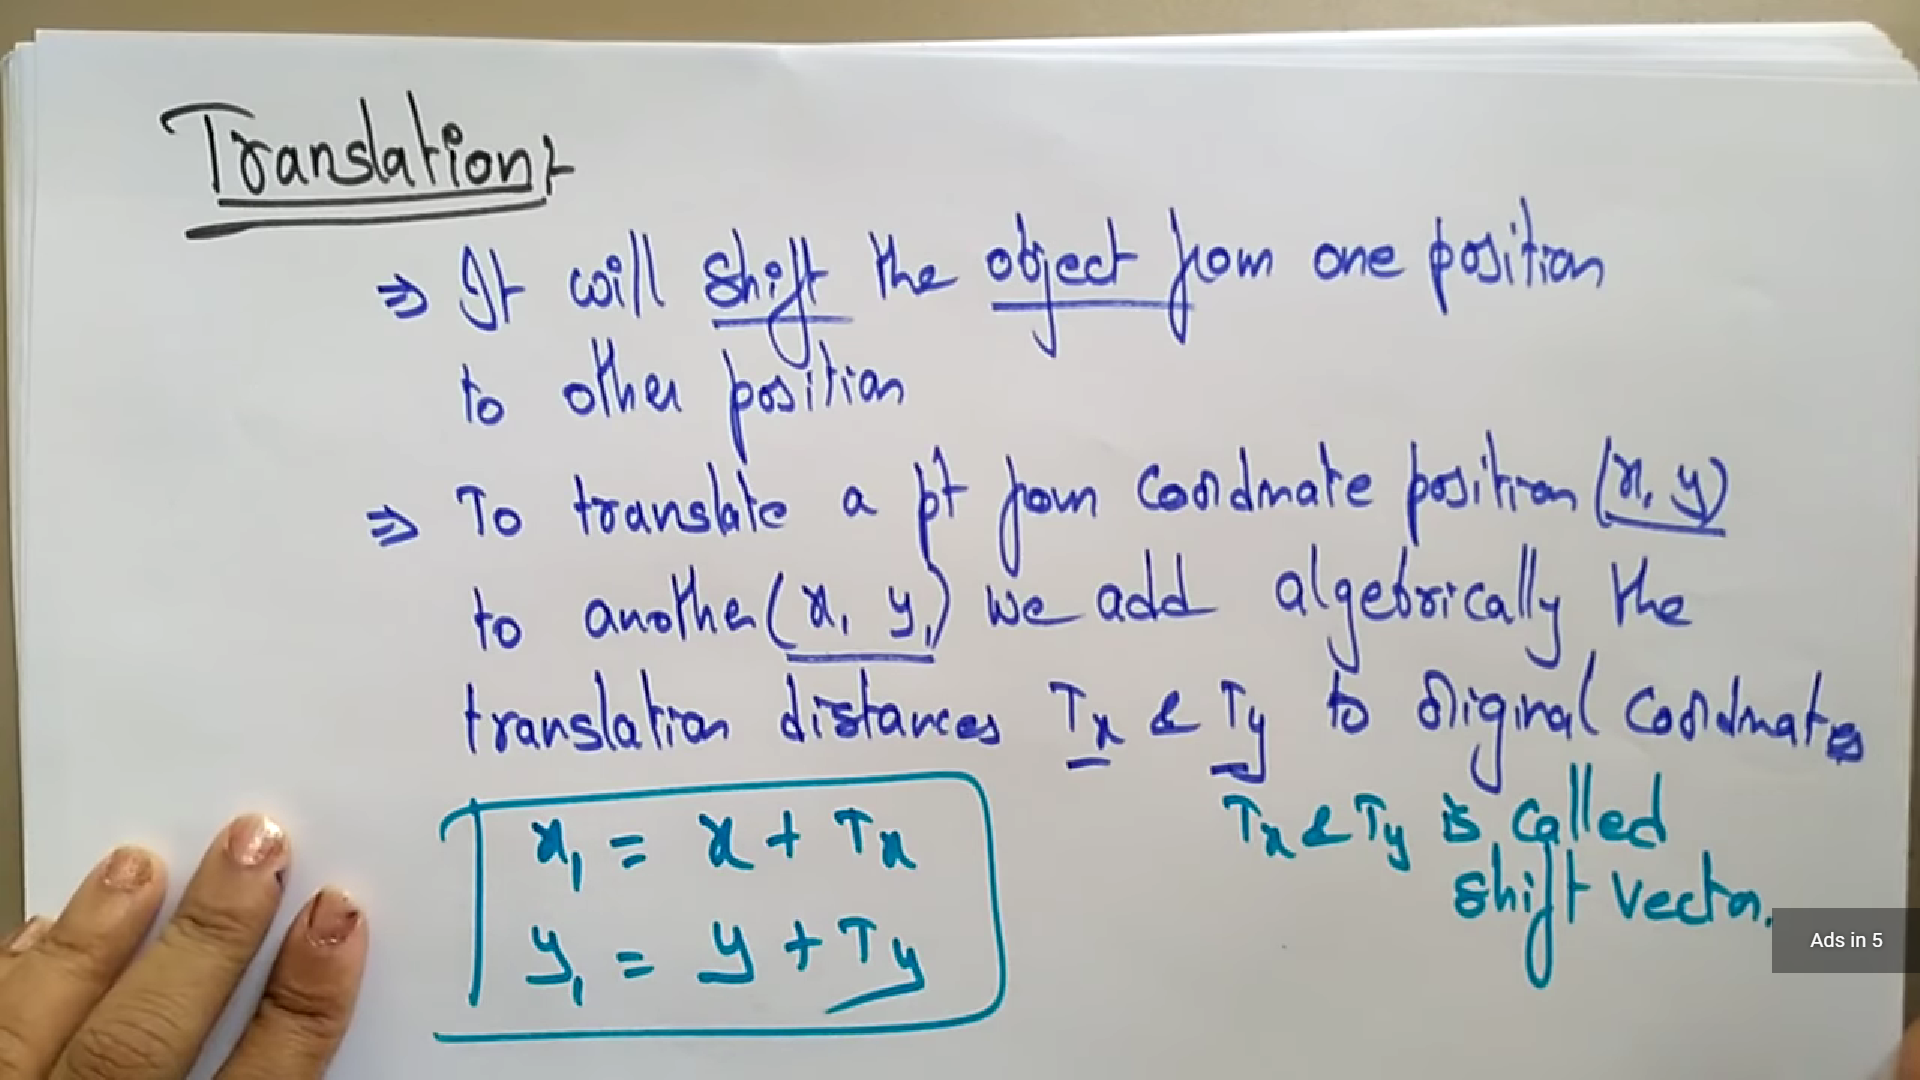 Translation:-
⇒ It will shift the object from one position
to other position
⇒ To translate a pt from coordinate position (x, y)
to another (x₁ y₁) we add algebrically the
translation distances Tx & Ty to original coordinates
x₁ = x + Tx
y₁ = y + Ty
Tx & Ty is called
shift vector.
Ads in 5